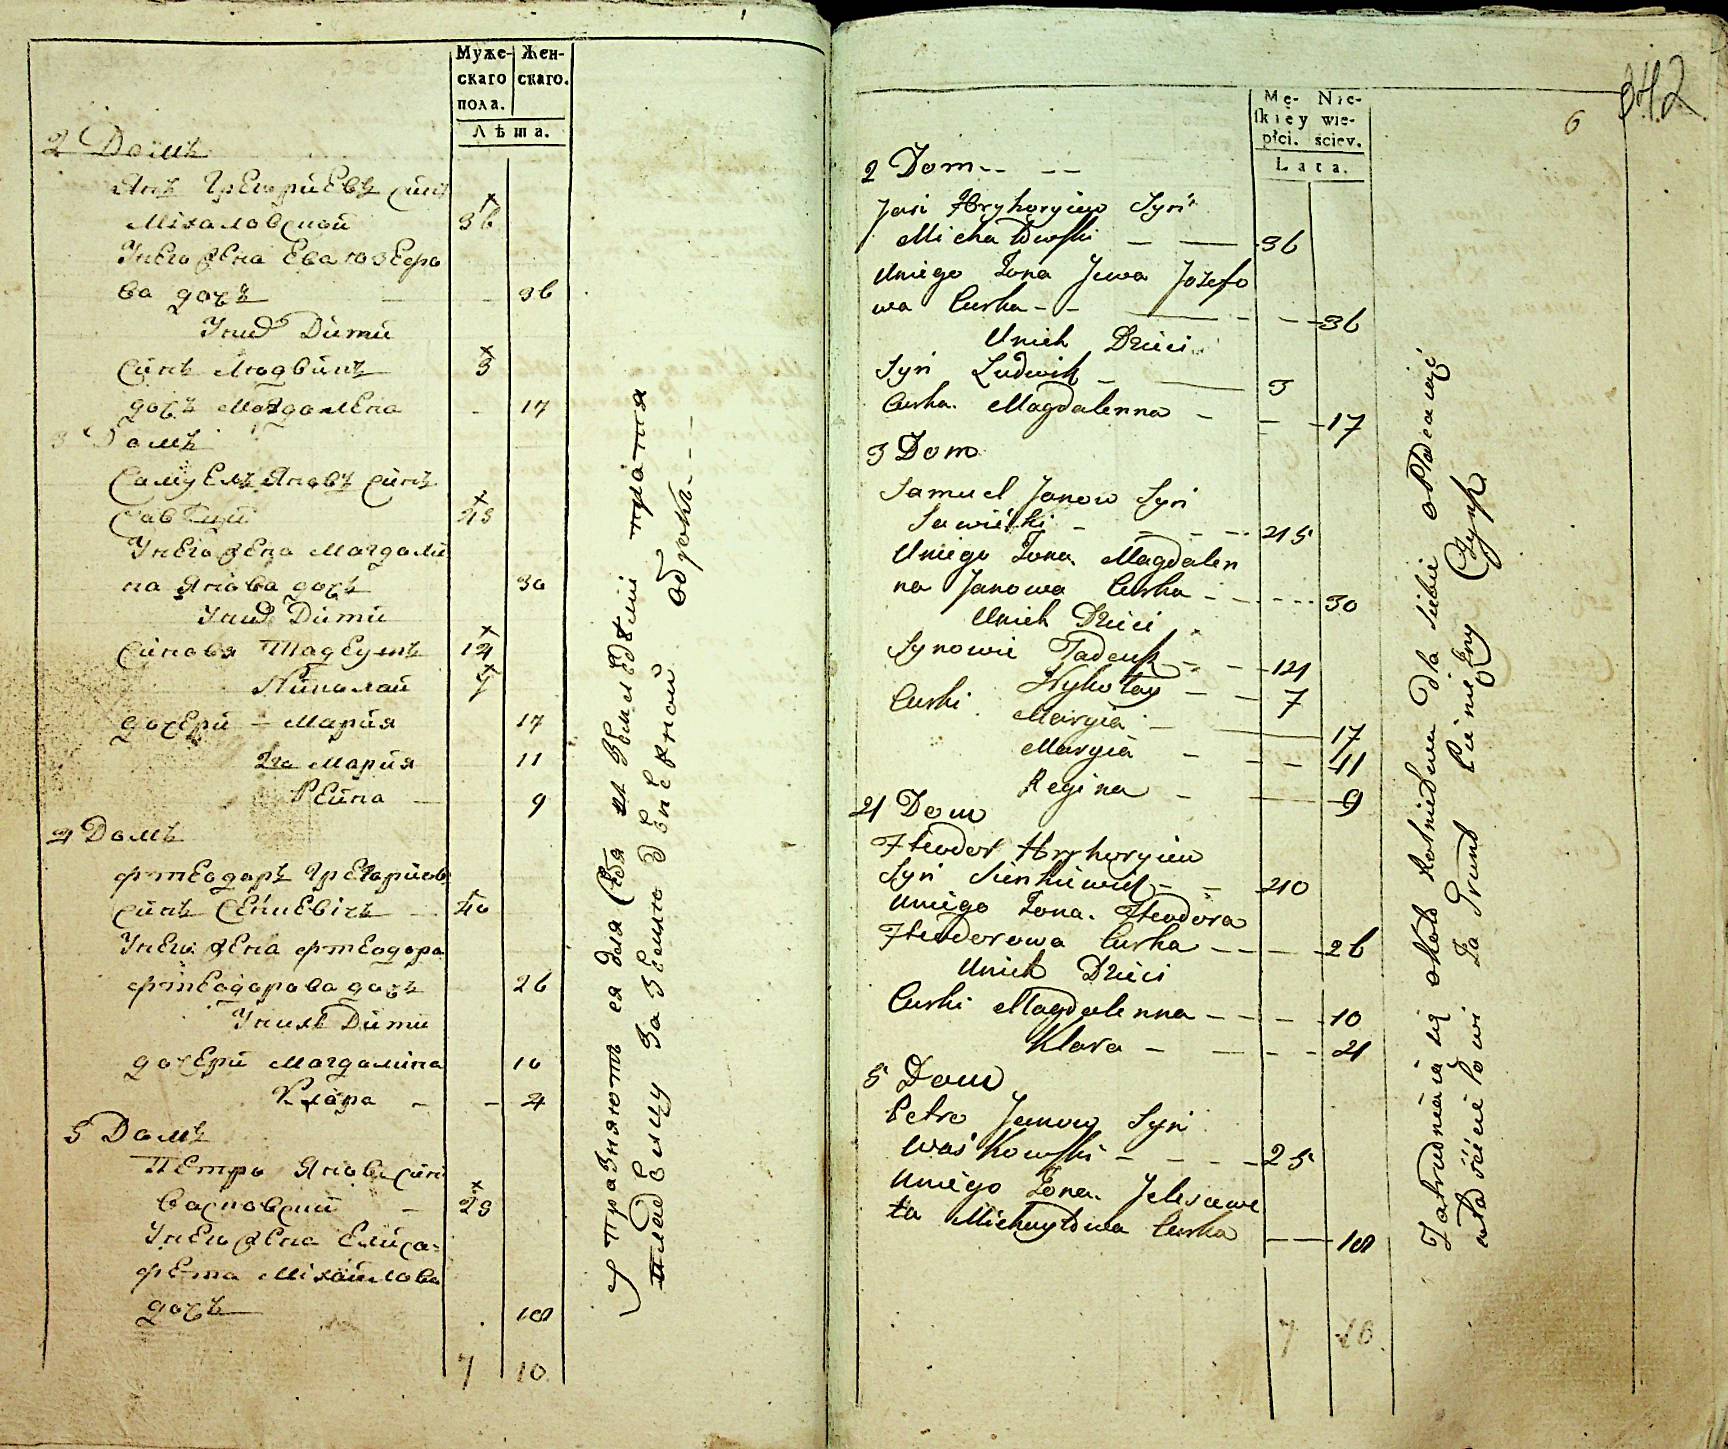 Муже- Жен-
скаго скаго.
пола.
Лѣта.
2 Домъ
Янъ Григриевъ синъ
Михаловской 36
Унего жена Ева юзефо
ва дочъ 36
Уних Дити
синъ Людвикъ 3
дочъ Магдалена 17
3 Домъ
Самуелъ Яновъ синъ
Савицкий 45
Унего жена Магдали
на Янова дочъ 30
Уних Дити
синовя Тадеушъ 14
Николай 7
дочери Мария 17
2га Мария 11
Реина 9
4 Домъ
Фтеодоръ Григориев
синъ Сенкевичъ 40
Унего жена Фтеодора
Фтеодорова дочъ 26
Уних Дити
дочери Магдалина 10
Клара 4
5 Домъ
Петро Яновъ синъ
Васковский 25
Унего жена Елиса-
фета Михайлова
дочъ 18
7 10
Упражняютъ ся для себя землѣделием платя
владелцу за землю денежной оброкъ
342
6
Mę- Nie-
skiey wie-
płci. sciey.
Lata.
2 Dom
Jan Hryhoryiew Syn
Michałowski 36
Uniego Żona Jewa Jozefo
wa Curka 36
Unich Dzieci
Syn Ludwik 3
Curka Magdalenna 17
3 Dom
Samuel Janow Syn
Sawicki 45
Uniego Żona Magdalen
na Janowa Curka 30
Unich Dzieci
Synowie Tadeusz 14
Nykołay 7
Curki Maryia 17
Maryia 11
Regina 9
4 Dom
Fteodor Hryhoryiew
Syn Sienkiewicz 40
Uniego Żona Fteodora
Fteodorowa Curka 26
Unich Dzieci
Curki Magdalenna 10
Klara 4
5 Dom
Petro Janow Syn
Waśkowski 25
Uniego Żona Jelisawe
ta Michayłowa Curka 18
7 10
Zatrudniaią się około Rolnictwa dla siebie opłacaiąc
właścicielowi za Grunt Pienięzny Czynsz